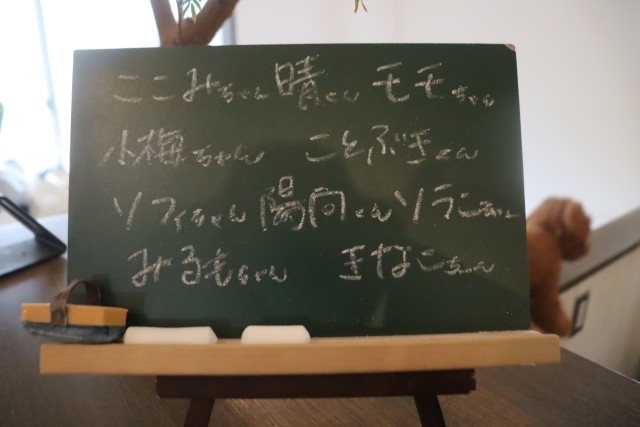 ここみちゃん 晴くん モモちゃん
小梅ちゃん ことぶきくん
ソフィちゃん 陽向くん ソラちゃん
みるもちゃん きなこちゃん